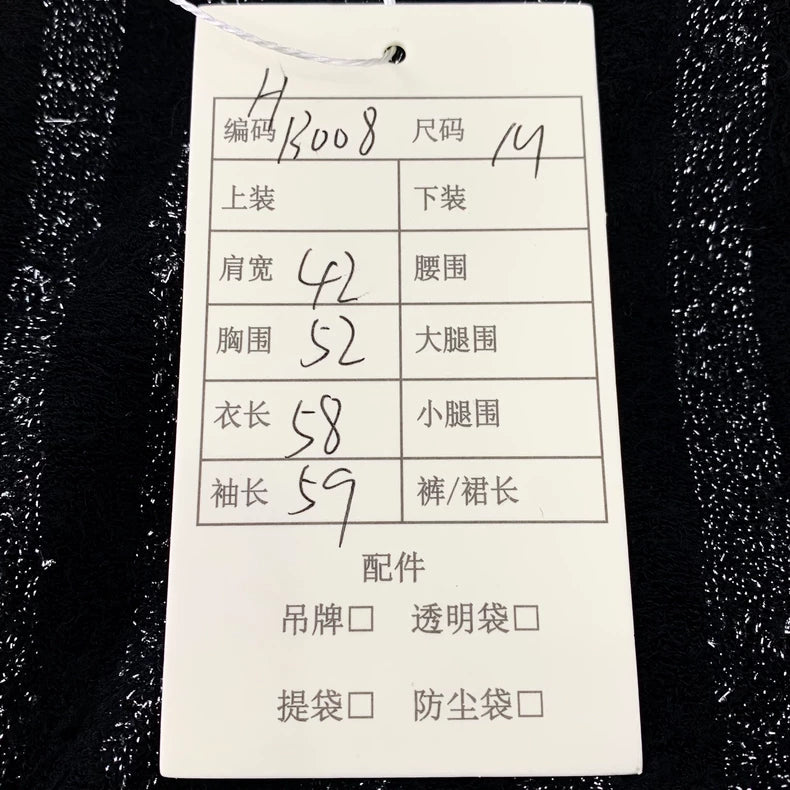 H
编码 B008 尺码 M
上装 下装
肩宽 42 腰围
胸围 52 大腿围
衣长 58 小腿围
袖长 59 裤/裙长
配件
吊牌□ 透明袋□
提袋□ 防尘袋□